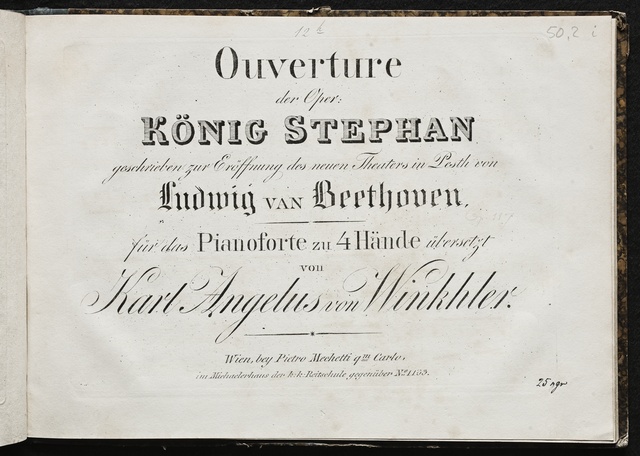 12 b
50,2 i
Ouverture
der Oper:
KÖNIG STEPHAN
geschrieben zur Eröffnung des neuen Theaters in Pesth von
Ludwig VAN Beethoven,
für das Pianoforte zu 4 Hände übersetzt
von
Karl Angelus von Winkhler.
Wien, bey Pietro Mechetti qm Carlo,
im Michaelerhaus der k: k: Reitschule gegenüber No. 1153.
25 ngr